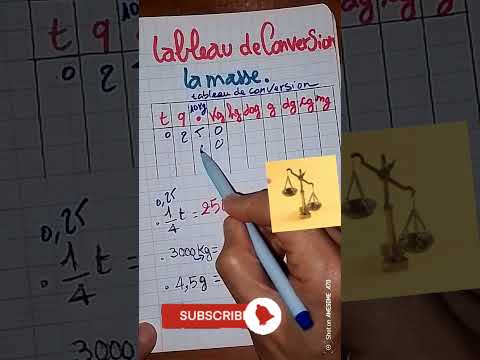 tableau de Conversion
la masse.
tableau de conversion
t q . kg hg dag g dg cg mg
0 2 5 0
0
0,25
. 1/4 t = 25
. 3000 kg =
. 4,5g =
SUBSCRIBE
Shot on AWESOME A70